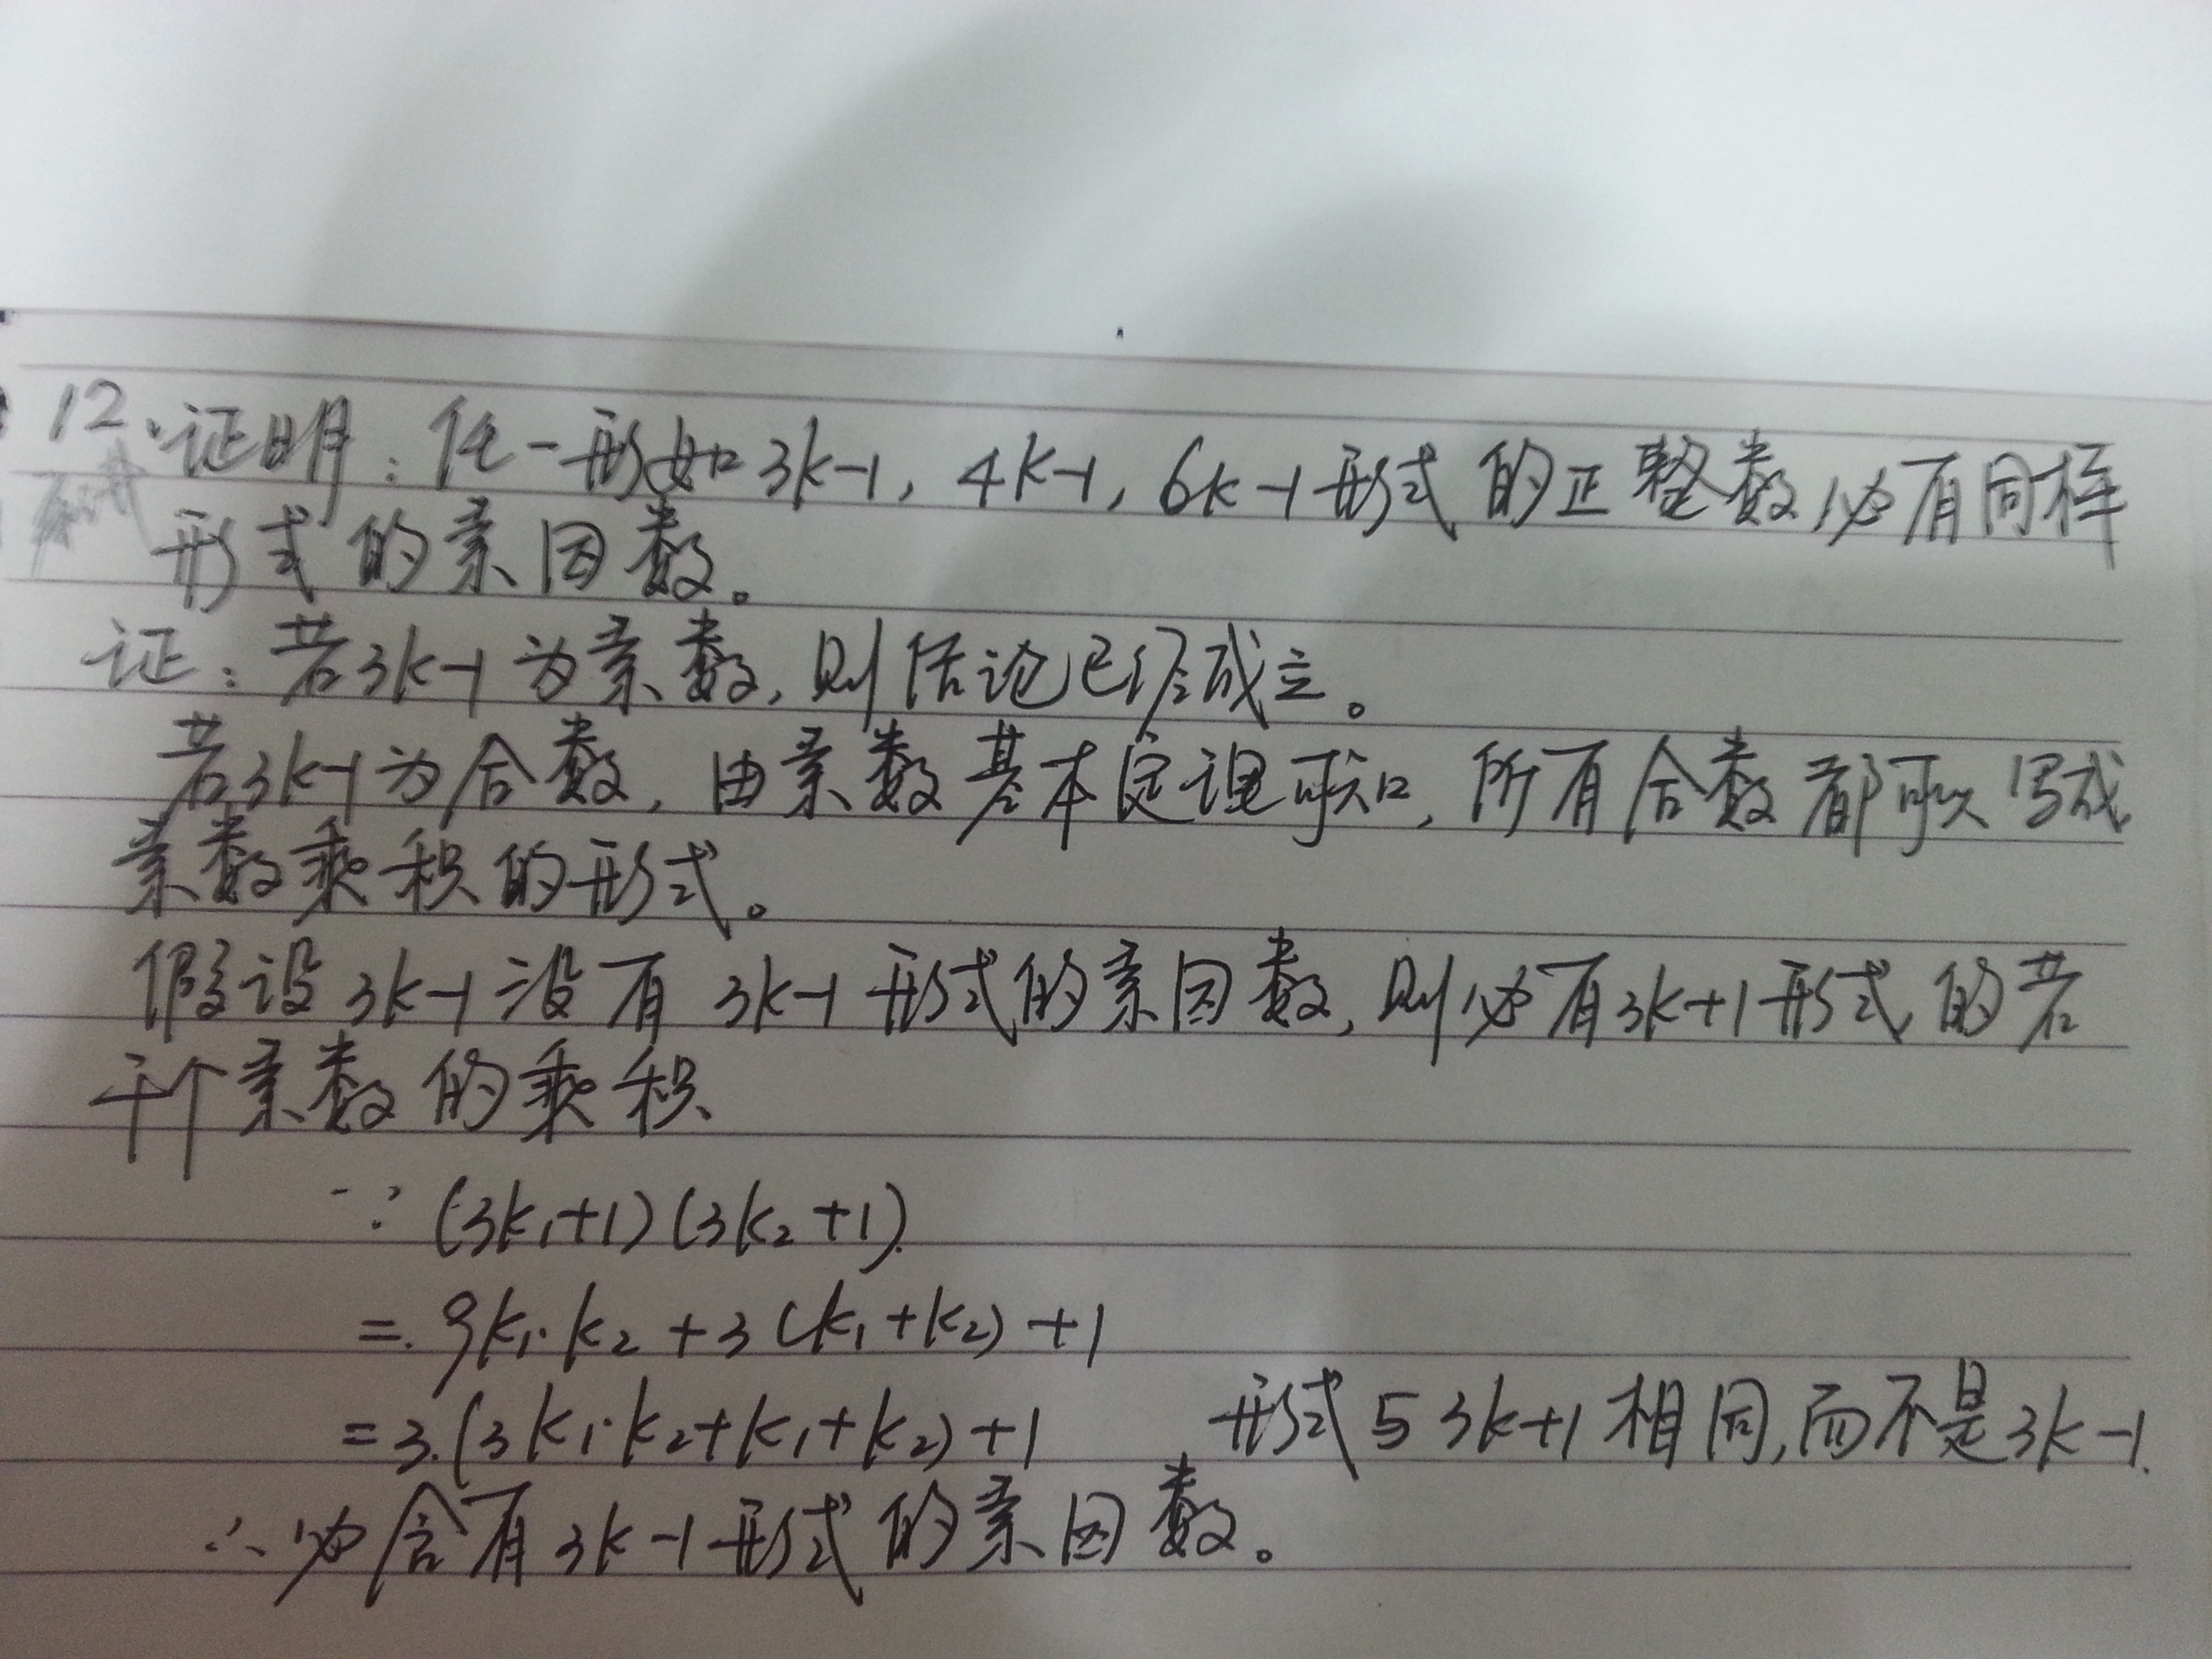 12. 证明: 任一形如3k-1, 4k-1, 6k-1形式的正整数必有同样
形式的素因数。
证: 若3k-1为素数, 则结论已经成立。
若3k-1为合数, 由素数基本定理可知, 所有合数都可以写成
素数乘积的形式。
假设3k-1没有3k-1形式的素因数, 则必有3k+1形式的若
干个素数的乘积
∵ (3k₁+1)(3k₂+1)
= 9k₁·k₂+3(k₁+k₂)+1
=3·(3k₁·k₂+k₁+k₂)+1 形式与3k+1相同,而不是3k-1.
∴必含有3k-1形式的素因数。